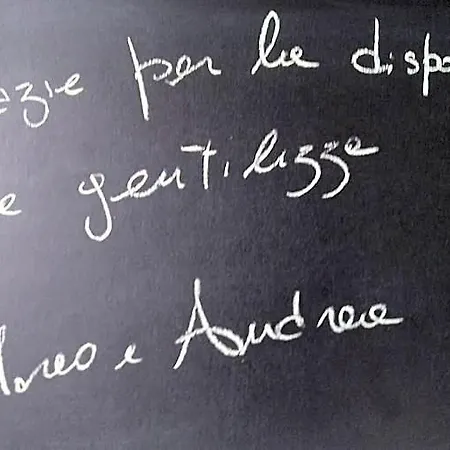 azie per la dispo
e gentilezza
e Andrea